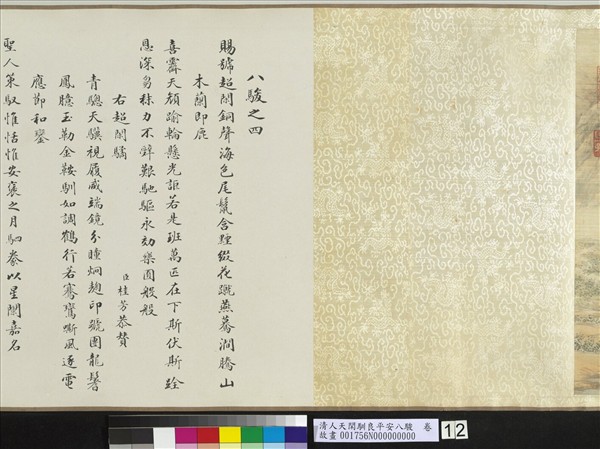 八駿之四
賜號超閑銅聲海色尾鬣含煙綴花蹴燕驀澗騰山
木蘭即鹿
喜霽天顏踰輪懸光詎若是班萬匹在下斯伏斯跧
恩深芻秣力不辭艱馳驅永効樂園般般
右超閑驕
臣桂芳恭贊
青驄天驥視履咸端鏡分瞳炯麹印號團龍鬐
鳳臆玉勒金鞍馴如調鶴行若騫鸞嘶風逐電
應節和鑾
聖人策馭惟恬惟安襄之月駟豢以星闌嘉名
清人天閑馴良平安八駿 卷
故畫 001756N000000000
12